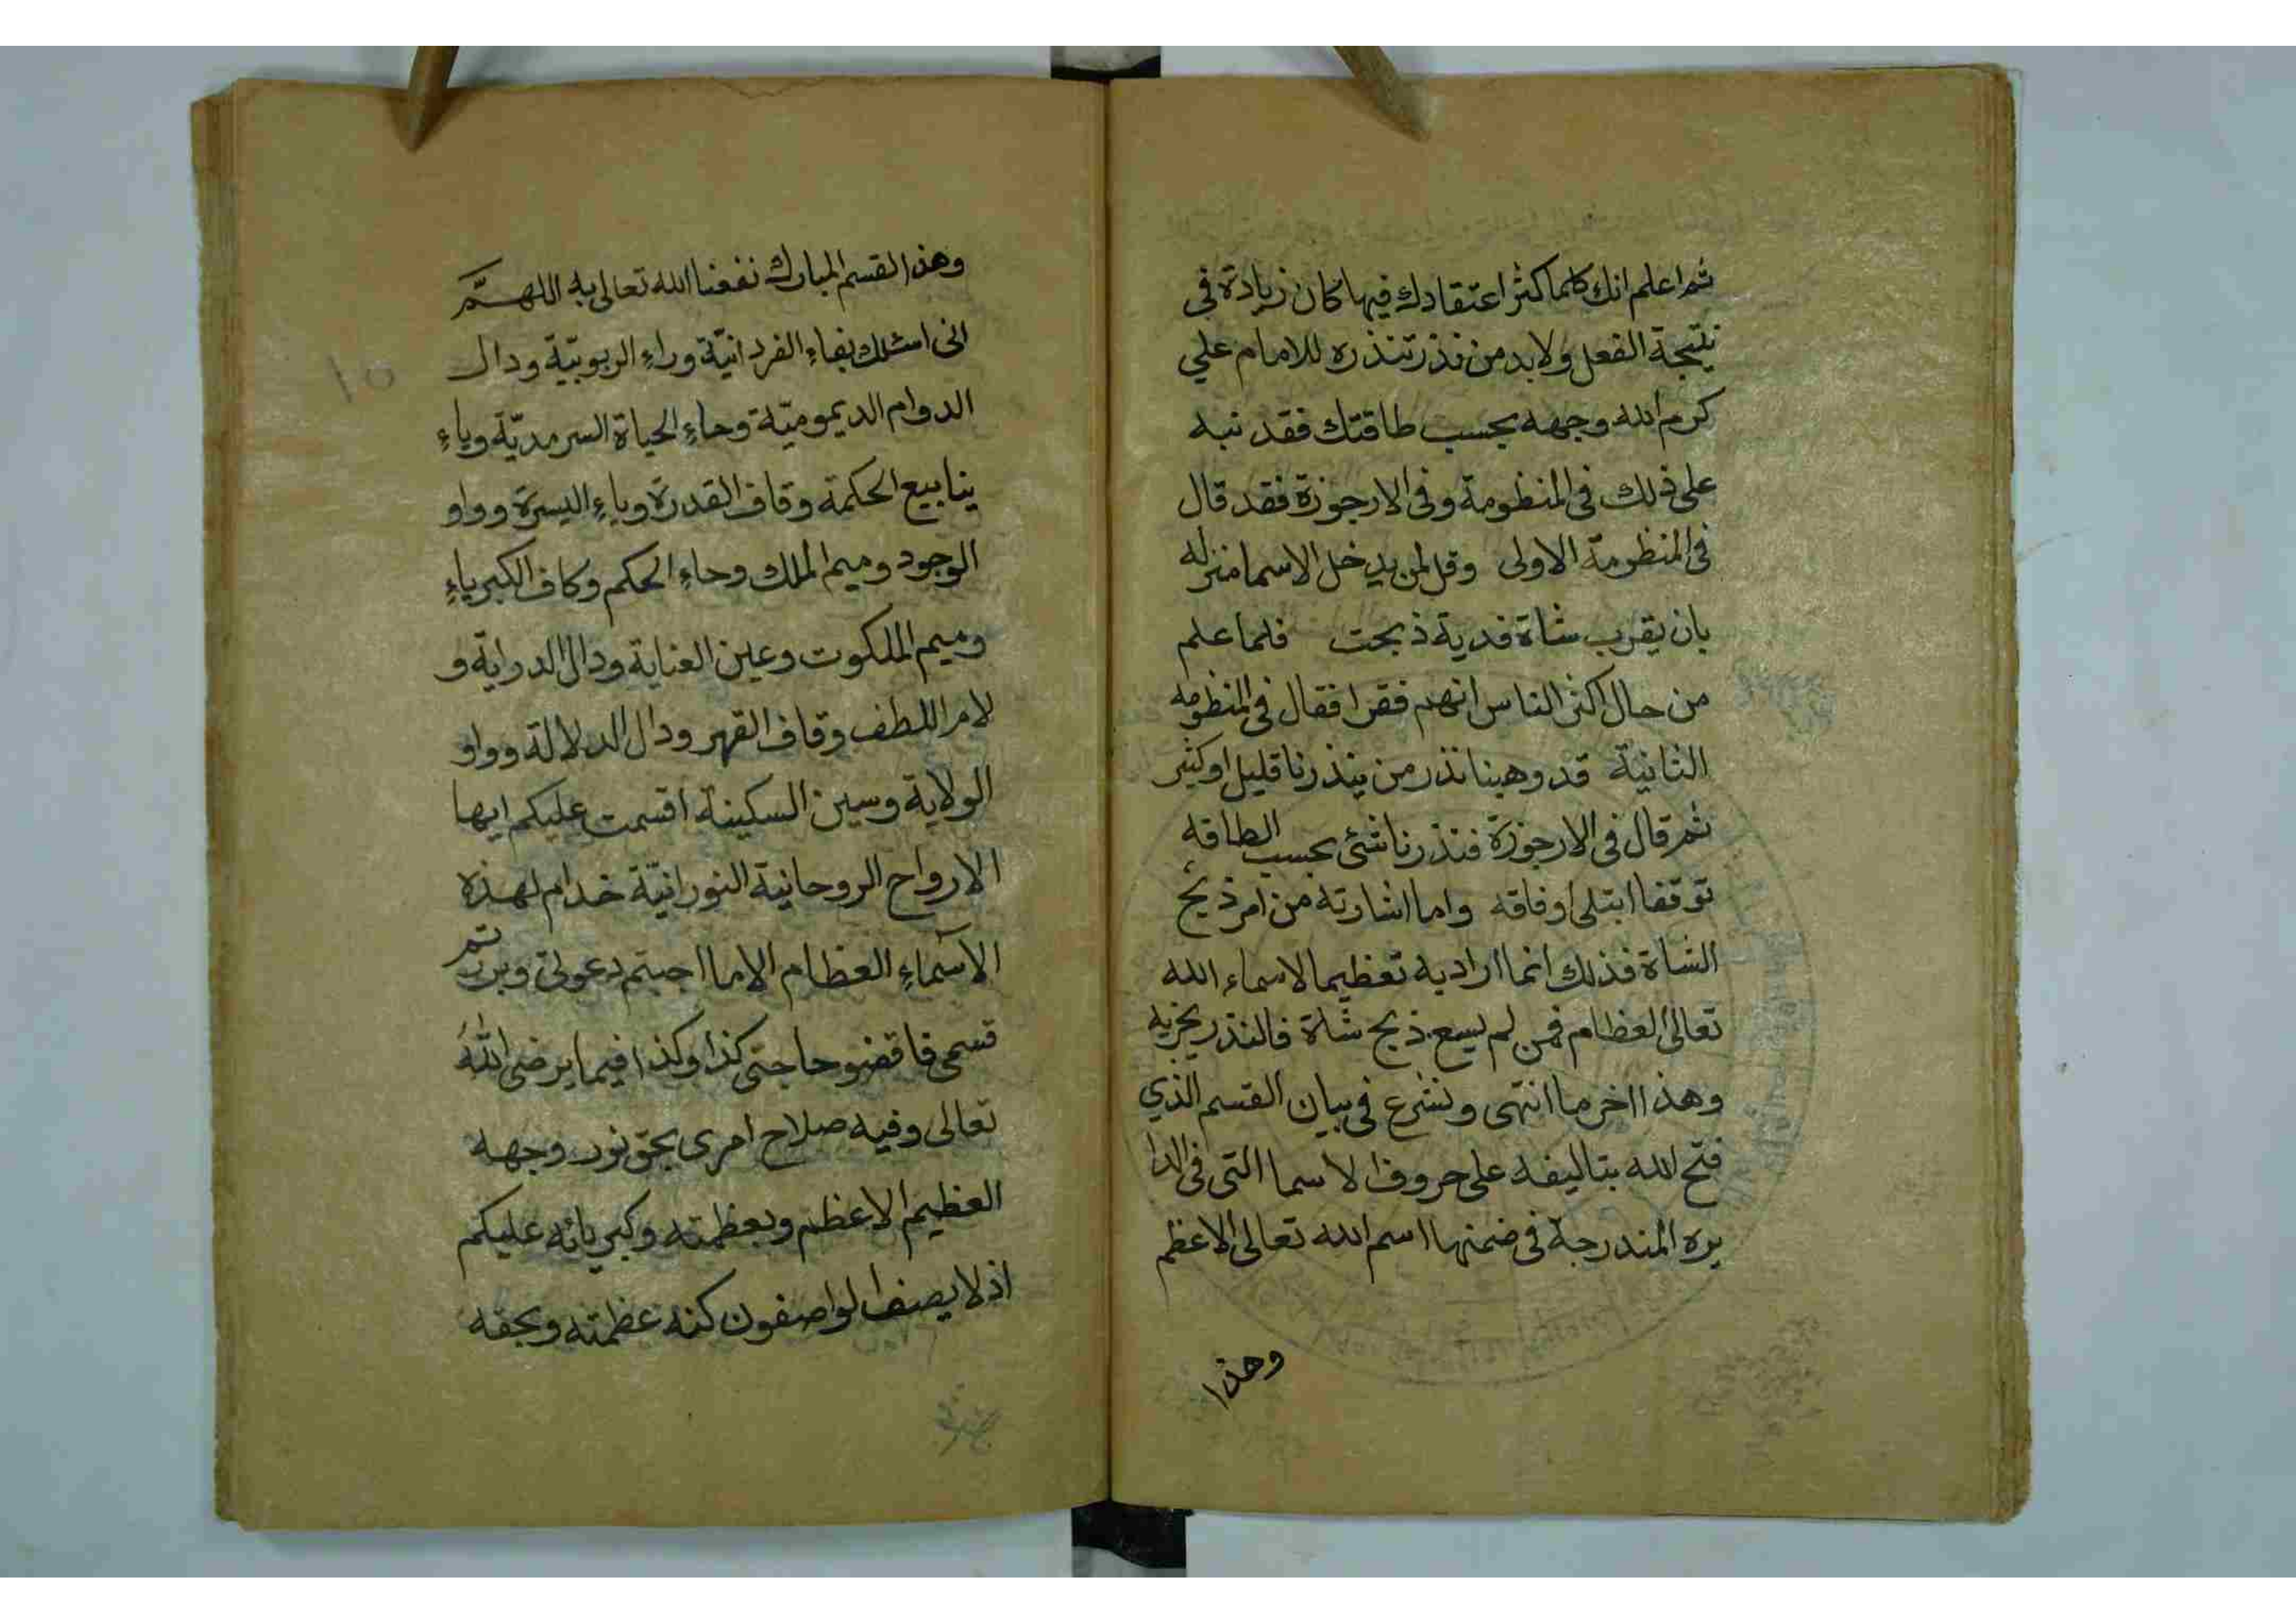 ثم اعلم انك كلما كثر اعتقادك فيها كان زيادة في
نتيجة الفعل ولابد من نذر تنذره للامام علي
كرم الله وجهه بحسب طاقتك فقد نبه
على ذلك في المنظومة وفي الارجوزة فقد قال
في المنظومة الاولى وقل لمن يدخل الاسما منزله
بان يقرب شاة فدية ذبحت فلما علم
من حال اكثر الناس انهم فقرا فقال في المنظومه
الثانية قد وهبنا نذر من ينذرنا قليل او كثير
ثم قال في الارجوزة فنذرنا شئ بحسب الطاقه
توقفا ابتلى اوفاقه واما اشارته من امر ذبح
الشاة فذلك انما اراد به تعظيما لاسماء الله
تعالى العظام فمن لم يسع ذبح شاة فالنذر يجزيه
وهذا اخر ما انتهى ونشرع في بيان القسم الذي
فتح الله بتاليفه على حروف الاسما التي في الدا
يره المندرجة في ضمنها اسم الله تعالى الاعظم
وهذا
وهذا القسم المبارك نفعنا الله تعالى به اللهم
اني اسئلك بفاء الفردانية وراء الربوبية ودال
الدوام الديمومية وحاء الحياة السرمدية وياء
ينابيع الحكمة وقاف القدرة وياء اليسرة وواو
الوجود وميم الملك وحاء الحكم وكاف الكبرياء
وميم الملكوت وعين العناية ودال الدراية و
لام اللطف وقاف القهر ودال الدلالة وواو
الولاية وسين السكينة اقسمت عليكم ايها
الارواح الروحانية النورانية خدام لهذه
الاسماء العظام الاما اجبتم دعوتي وبررتم
قسمي فاقضو حاجتي كذا وكذا فيما يرضى الله
تعالى وفيه صلاح امرى بحق نور وجهه
العظيم الاعظم وبعظمته وكبريائه عليكم
اذ لا يصف الواصفون كنه عظمته وبحقه
١٥